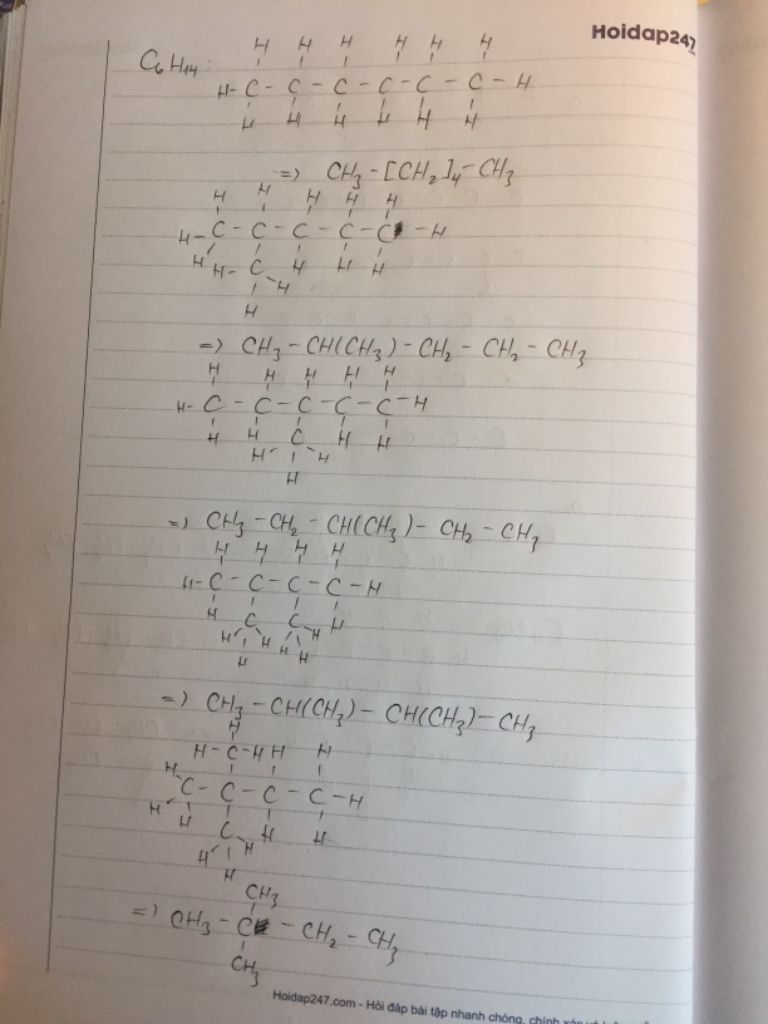 Hoidap247
C6H14:
H H H H H H
H - C - C - C - C - C - C - H
H H H H H H
=> CH3 - [CH2]4 - CH3
H H H H H
H - C - C - C - C - C - H
H H - C H H H
H
H
=> CH3 - CH(CH3) - CH2 - CH2 - CH3
H H H H H
H - C - C - C - C - C - H
H H C H H
H H
H
=> CH3 - CH2 - CH(CH3) - CH2 - CH3
H H H H
H - C - C - C - C - H
H C C H
H H H
H H H
=> CH3 - CH(CH3) - CH(CH3) - CH3
H
H - C - H H H
H
C - C - C - C - H
H H C H H
H H
H
CH3
=> CH3 - C - CH2 - CH3
CH3
Hoidap247.com - Hỏi đáp bài tập nhanh chóng, chính xác